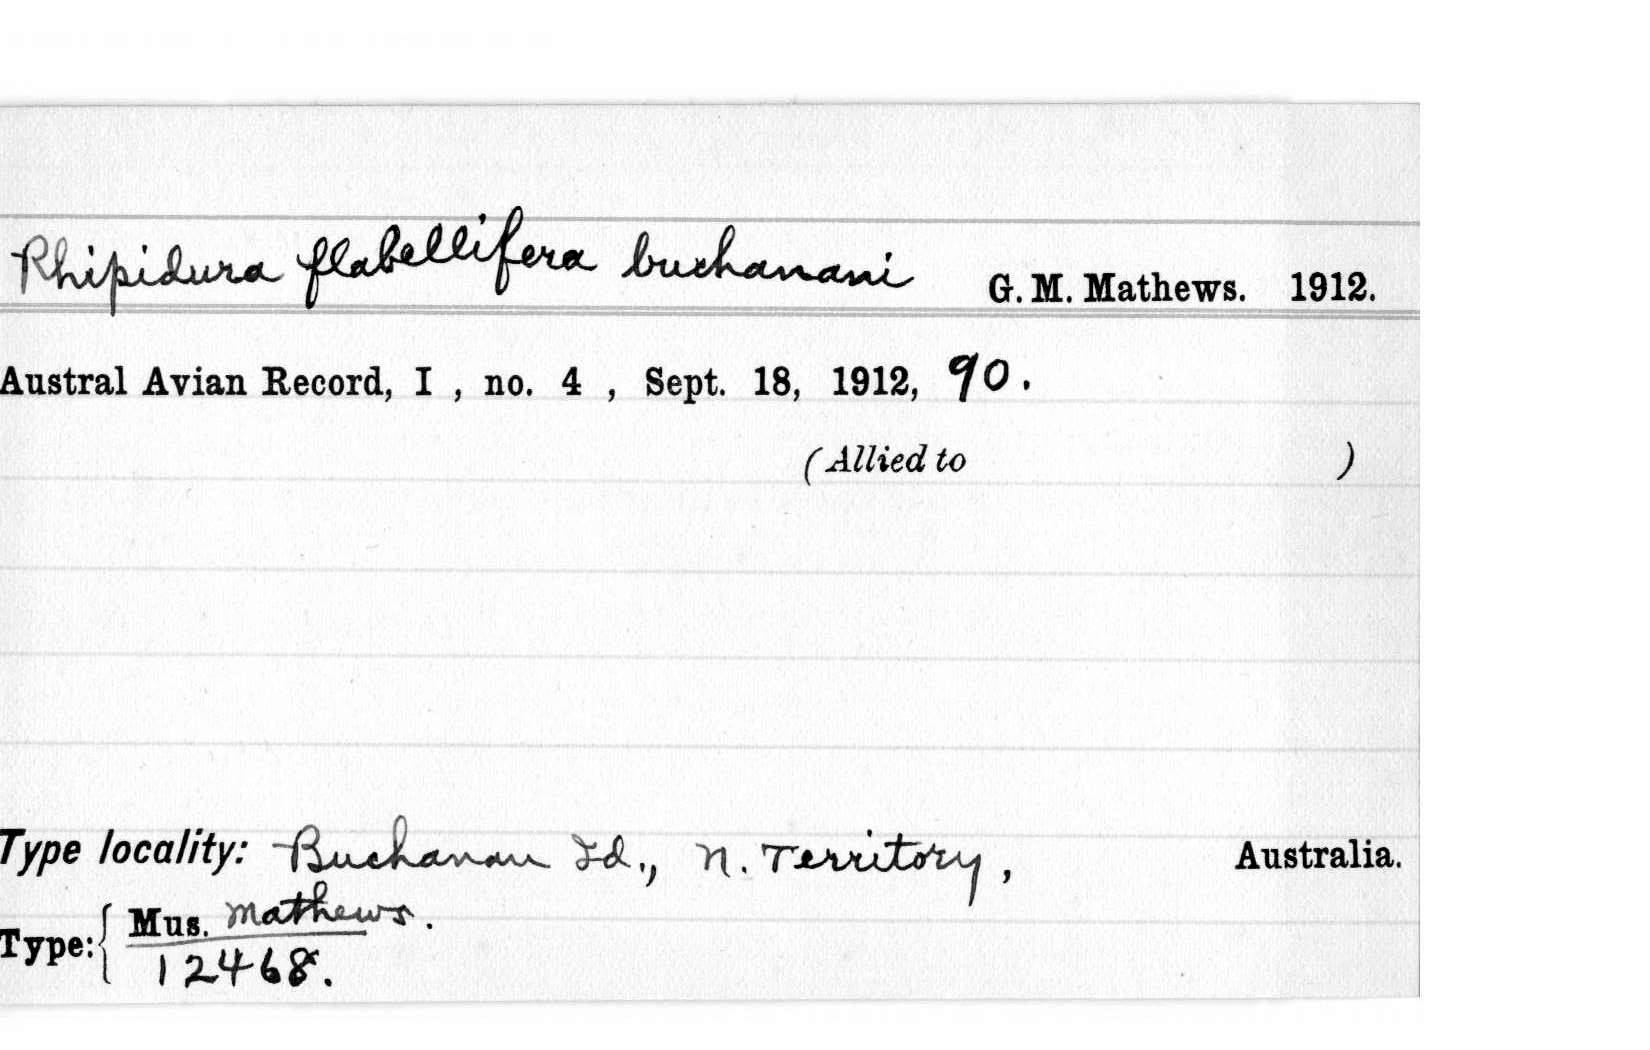 Rhipidura flabellifera buchanani G. M. Mathews. 1912.
Austral Avian Record, I , no. 4 , Sept. 18, 1912, 90.
(Allied to )
Type locality: Buchanan Id., N. Territory, Australia.
Type: { Mus. Mathews.
12468.